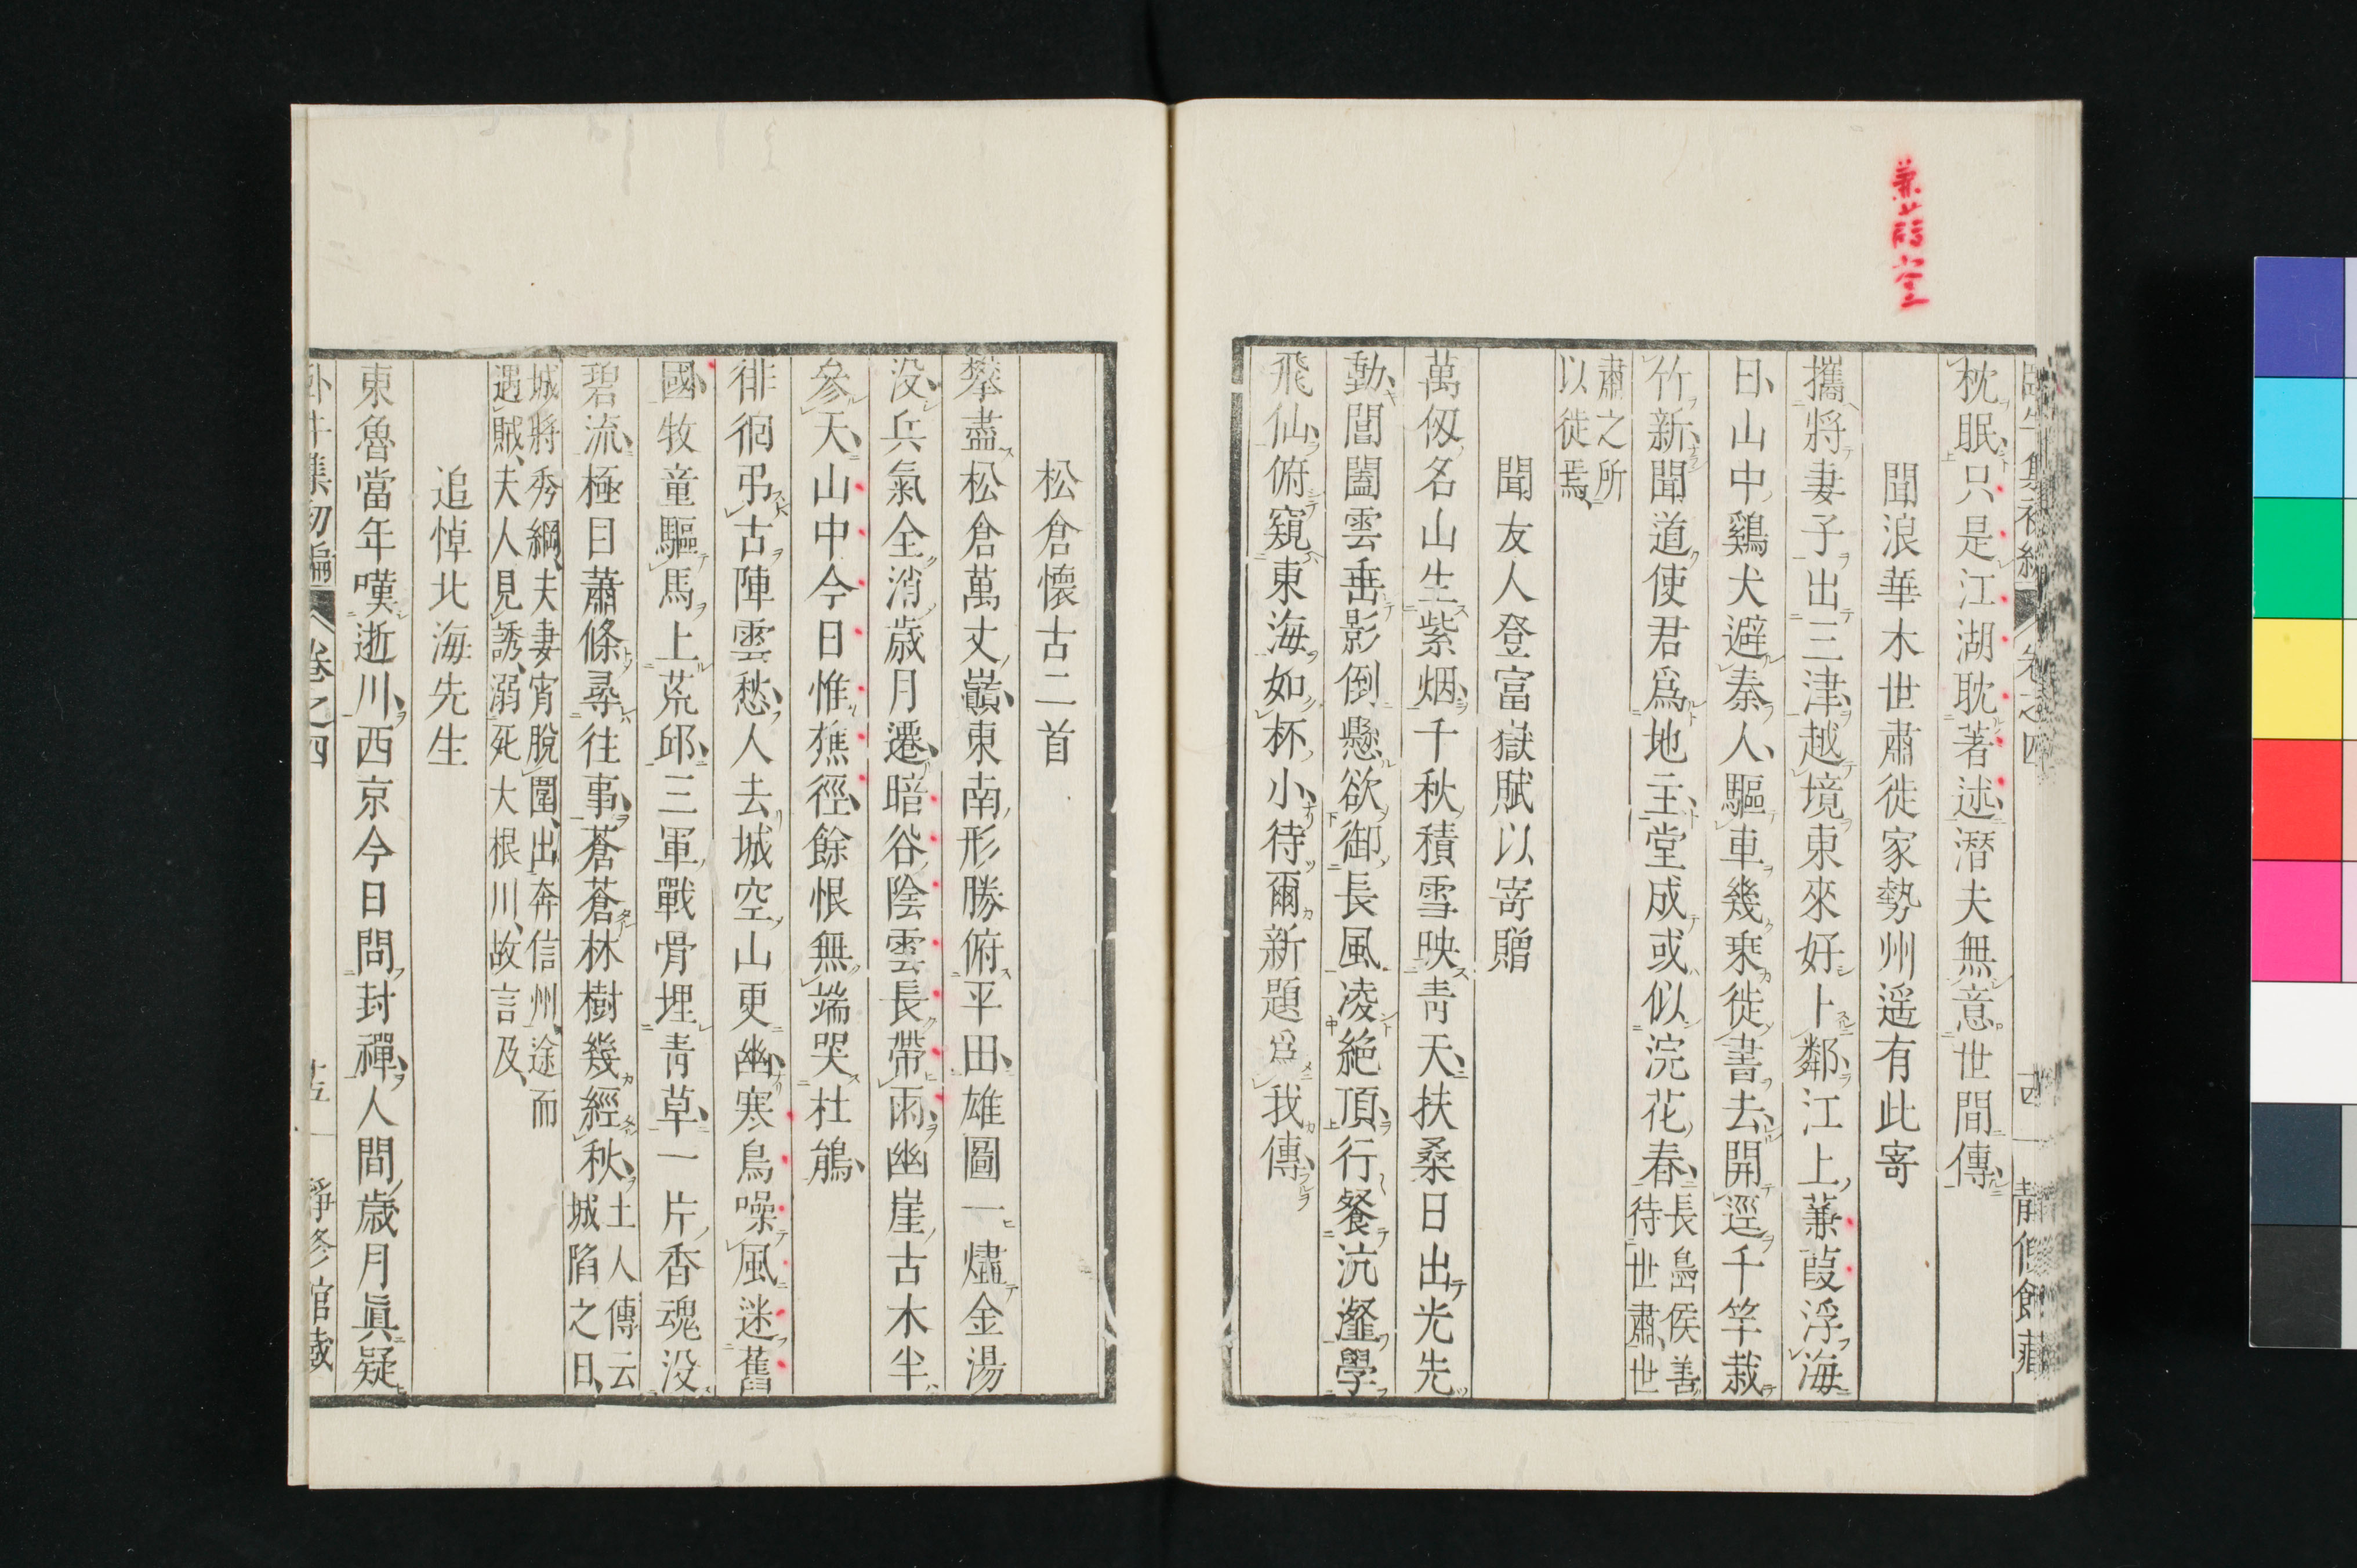 枕眠只是江湖耽著述潛夫無意世間傳
聞浪華木世肅徙家勢州遥有此寄
攜將妻子出三津越境東來好卜鄰江上蒹葭浮海
日山中鷄犬避秦人驅車幾乘徙書去開逕千竿栽
竹新聞道使君爲地主堂成或似浣花春長島侯善
待世肅世
肅之所
以徙焉
聞友人登富嶽賦以寄贈
萬仭名山生紫烟千秋積雪映靑天扶桑日出光先
動閶闔雲垂影倒懸欲御長風凌絶頂行餐沆瀣學
飛仙俯窺東海如杯小待爾新題爲我傳
松倉懷古二首
攀盡松倉萬丈巓東南形勝俯平田雄圖一燼金湯
沒兵氣全消歲月遷暗谷陰雲長帶雨幽崖古木半
參天山中今日惟樵徑餘恨無端哭杜鵑
徘徊弔古陣雲愁人去城空山更幽寒鳥噪風迷舊
國牧童驅馬上荒邱三軍戰骨埋靑草一片香魂沒
碧流極目蕭條尋往事蒼蒼林樹幾經秋土人傳云
城陷之日
城將秀綱夫妻宵脫圍出奔信州途而
遇賊夫人見誘溺死大根川故言及
追悼北海先生
東魯當年嘆逝川西京今日問封禪人間歲月眞疑
卷之四